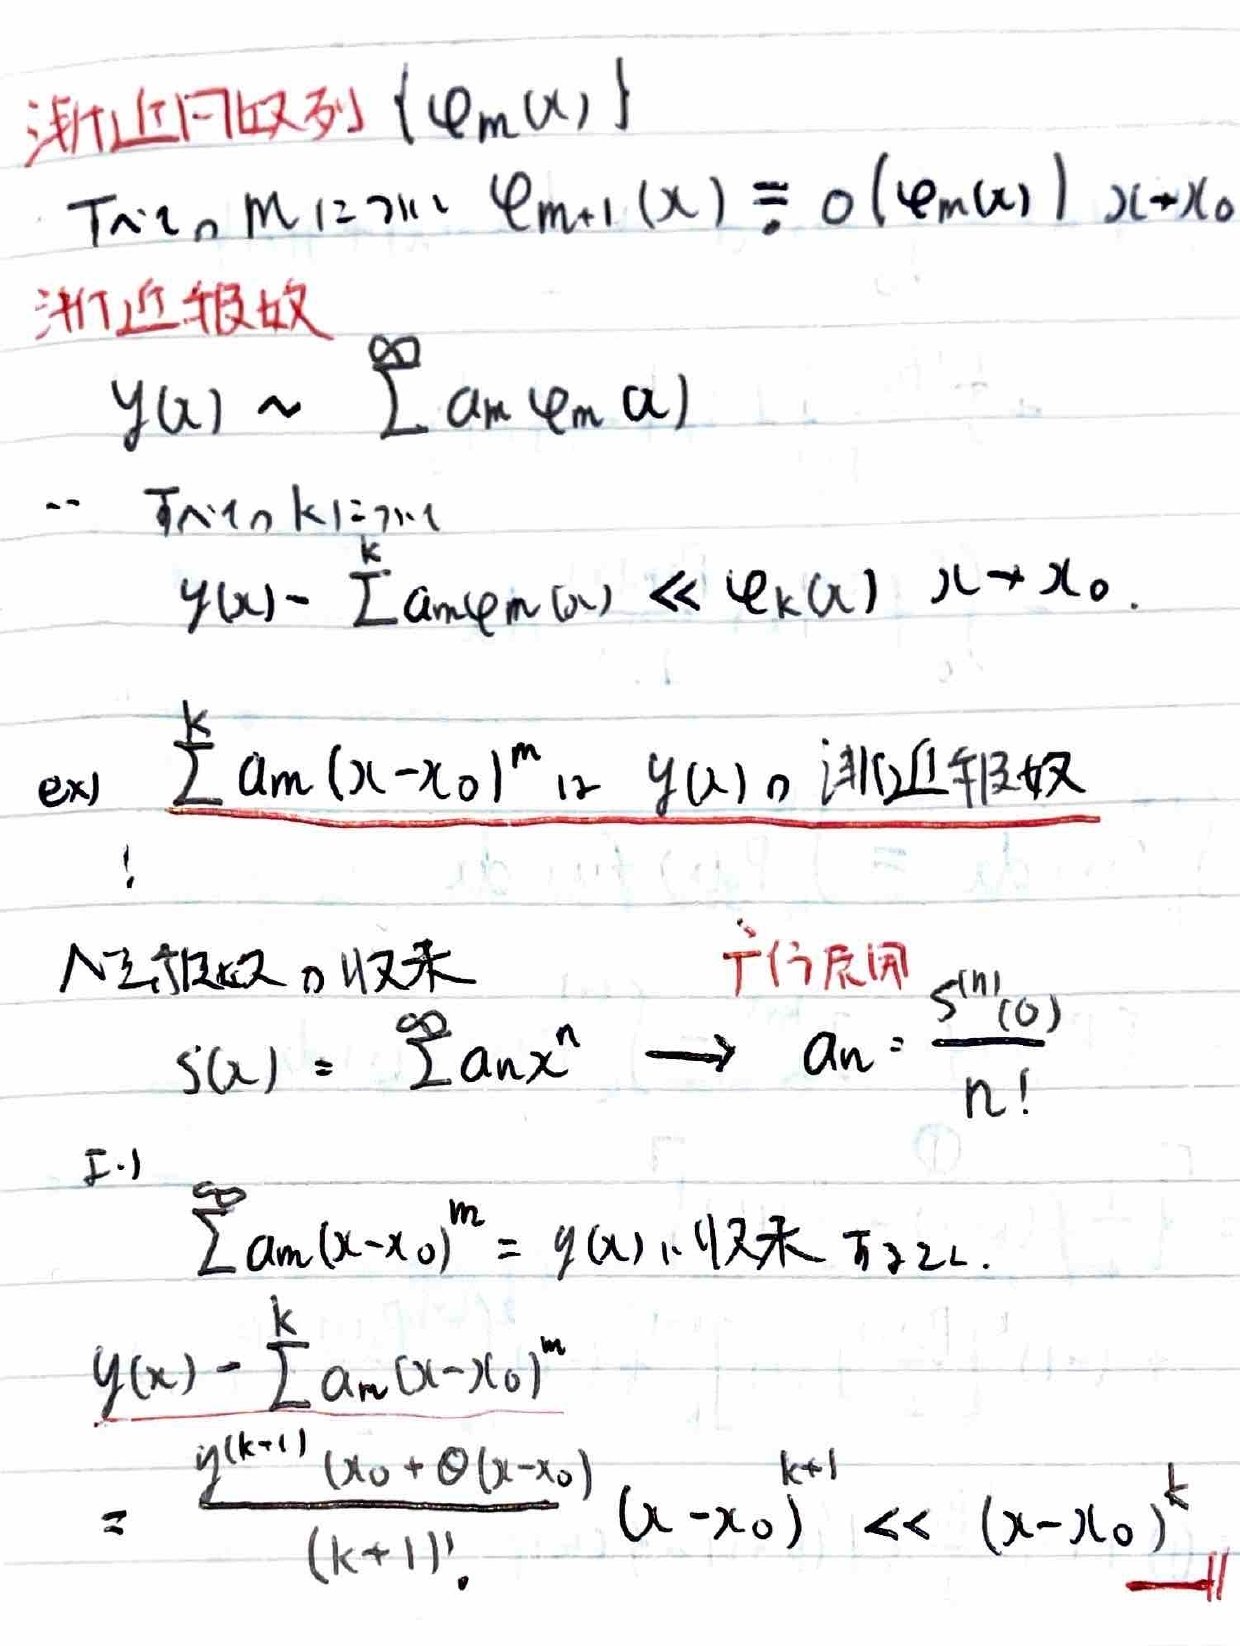 漸近関数列 {φm(x)}
すべての m について φm+1(x) = o(φm(x)) x→x0
漸近級数
y(x) ~ ∞Σ am φm(x)
‥ すべての k について
y(x) - kΣ amφm(x) ≪ φk(x) x→x0.
ex) kΣ am(x-x0)^m は y(x) の 漸近級数
!
べき級数の収束 テイラー展開
S(x) = ∞Σ an x^n → an = S^(n)(0) / n!
より
∞Σ am(x-x0)^m = y(x) に収束 すること.
y(x) - kΣ am(x-x0)^m
= y^(k+1)(x0+θ(x-x0)) / (k+1)! (x-x0)^k+1 ≪ (x-x0)^k